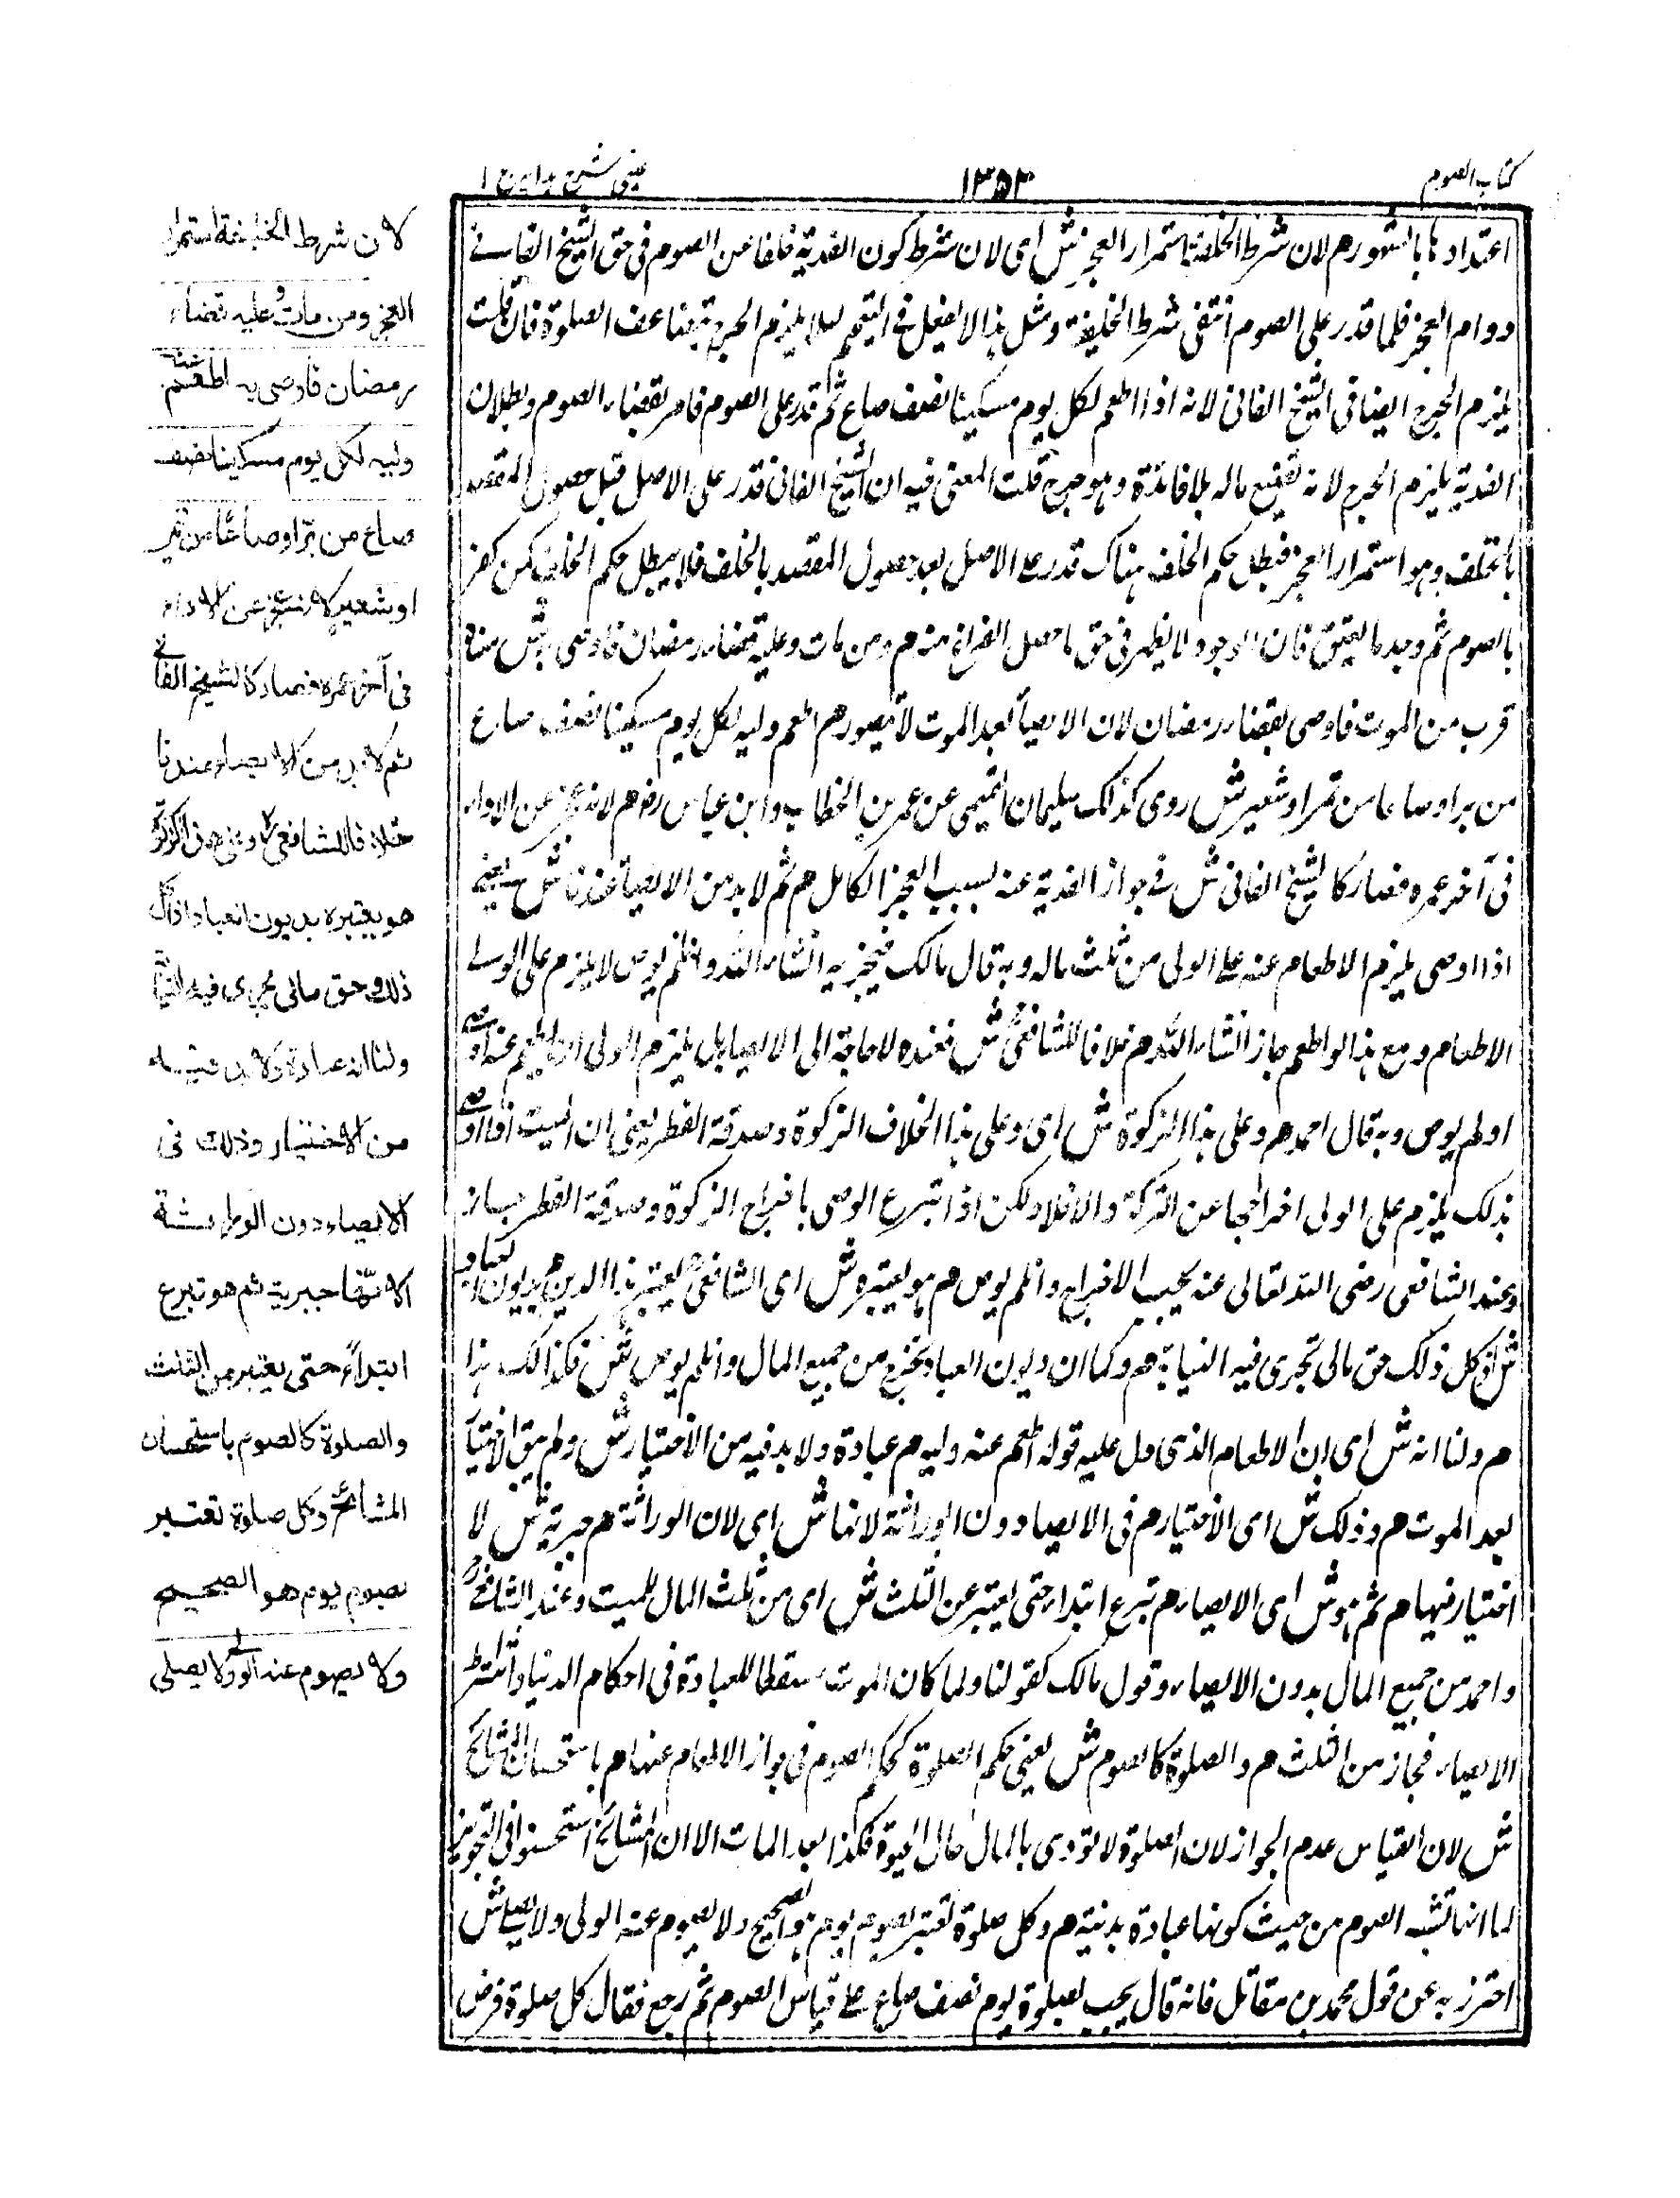 كتاب الصوم
١٣٥٣
عينى شرح هدايه ج ١
اعتدادها بالشهور هم لان شرط الخلفية استمرار العجز ش اى لان شرط كون الفدية خلفا عن الصوم فى حق الشيخ الفانى
دوام العجز فلما قدر على الصوم انتفى شرط الخليفة ومثل هذا لا يفعل فى التيمم لئلا يلزم الحرج بتضاعف الصلوة فان قلت
يلزم الحرج ايضا فى الشيخ الفانى لانه اذا اطعم لكل يوم مسكينا نصف صاع ثم قدر على الصوم فامر بقضاء الصوم وبطلان
الفدية يلزم الحرج لانه تضييع ماله بلا فائدة وهو حرج قلت المعنى فيه ان الشيخ الفانى قدر على الاصل قبل حصول المقصد
بالخلف وهو استمرار العجز فبطل حكم الخلف هناك قدر على الاصل بعد حصول المقصد بالخلف فلا يبطل حكم الخلف كمن كفر
بالصوم ثم وجد ما يعتق فان الوجود لا يظهر فى حق ما حصل الفراغ منه هم ومن مات وعليه قضاء رمضان فاوصى به ش معناه
قرب من الموت فاوصى بقضاء رمضان لان الايصاء بعد الموت لا يتصور هم اطعم وليه لكل يوم مسكينا نصف صاع
من بر او صاعا من تمر او شعير ش روى كذلك سليمان التيمى عن عمر بن الخطاب وابن عباس رض هم لانه عجز عن الاداء
فى آخر عمره فصار كالشيخ الفانى ش فى جواز الفدية عنه بسبب العجز الكامل هم ثم لا بد من الايصاء عندنا ش يعنى
اذا اوصى يلزم الاطعام عنه على الولى من ثلث ماله وبه قال مالك فيجزيه انشاء الله وان لم يوص لا يلزم على الولى
الاطعام ومع هذا لو اطعم جاز انشاء الله هم خلافا للشافعى ش فعنده لا حاجة الى الايصاء بل يلزم الولى ان يطعم عنه اوصى
او لم يوص وبه قال احمد هم وعلى هذا الزكوة ش اى وعلى هذا الخلاف الزكوة وصدقة الفطر يعنى ان الميت اذا اوصى
بذلك يلزم على الولى اخراجها عن التركة والا فلا ولكن اذا تبرع الوصى باخراج الزكوة وصدقة الفطر جاز
وعند الشافعى رضى الله تعالى عنه يجب الاخراج وان لم يوص هم هو يعتبره ش اى الشافعى يعتبر هذا الدين هم بديون العباد
ش اذ كل ذلك حق مالى تجرى فيه النيابة هم وكما ان ديون العباد يخرج من جميع المال وان لم يوص ش فكذالك هذا
هم ولنا انه ش اى ان الاطعام الذى دل عليه قوله اطعم عنه وليه هم عبادة ولا بد فيه من الاختيار ش ولم يبق الاختيار
بعد الموت هم وذلك ش اى الاختيار هم فى الايصاء دون الوراثة لانها ش اى لان الوراثة هم جبرية ش لا
اختيار فيها هم ثم هو ش اى الايصاء هم تبرع ابتداء حتى يعتبر عن الثلث ش اى من ثلث المال للميت وعند الشافعى
واحمد من جميع المال بدون الايصاء وقول مالك كقولنا ولما كان الموت مسقطا للعبادة فى احكام الدنيا واشترط
الايصاء فجاز من الثلث هم والصلوة كالصوم ش يعنى حكم الصلوة كحكم الصوم فى جواز الاطعام عنها هم باستحسان المشائخ
ش لان القياس عدم الجواز لان الصلوة لا تودى بالمال حال الحيوة فكذا بعد الممات الا ان المشائخ استحسنوا فى التجويز
لما انها تشبه الصوم من حيث كونها عبادة بدنية هم وكل صلوة تعتبر بصوم يوم هو الصحيح ولا يصوم عنه الولى ولا يصلى ش
احترز به عن قول محمد بن مقاتل فانه قال يجب لصلوة يوم نصف صاع على قياس الصوم ثم رجع فقال كل صلوة فرض
لان شرط الخليفة استمرار
العجز ومن مات وعليه قضاء
رمضان فاوصى به اطعم عنه
وليه لكل يوم مسكينا نصف
صاع من بر او صاعًا من تمر
او شعير لانه عجز عن الاداء
فى آخر عمره فصار كالشيخ الفانى
ثم لا بد من الايصاء عندنا
خلافا للشافعى وعلى هذا الزكوة
هو يعتبره بديون العباد اذ كل
ذلك حق مالى يجرى فيه النيابة
ولنا انه عبادة ولا بد فيه
من الاختيار وذلك فى
الايصاء دون الوراثة
لانها جبرية ثم هو تبرع
ابتداءً حتى يعتبر من الثلث
والصلوة كالصوم باستحسان
المشائخ وكل صلوة تعتبر
بصوم يوم هو الصحيح
ولا يصوم عنه الولى ولا يصلى